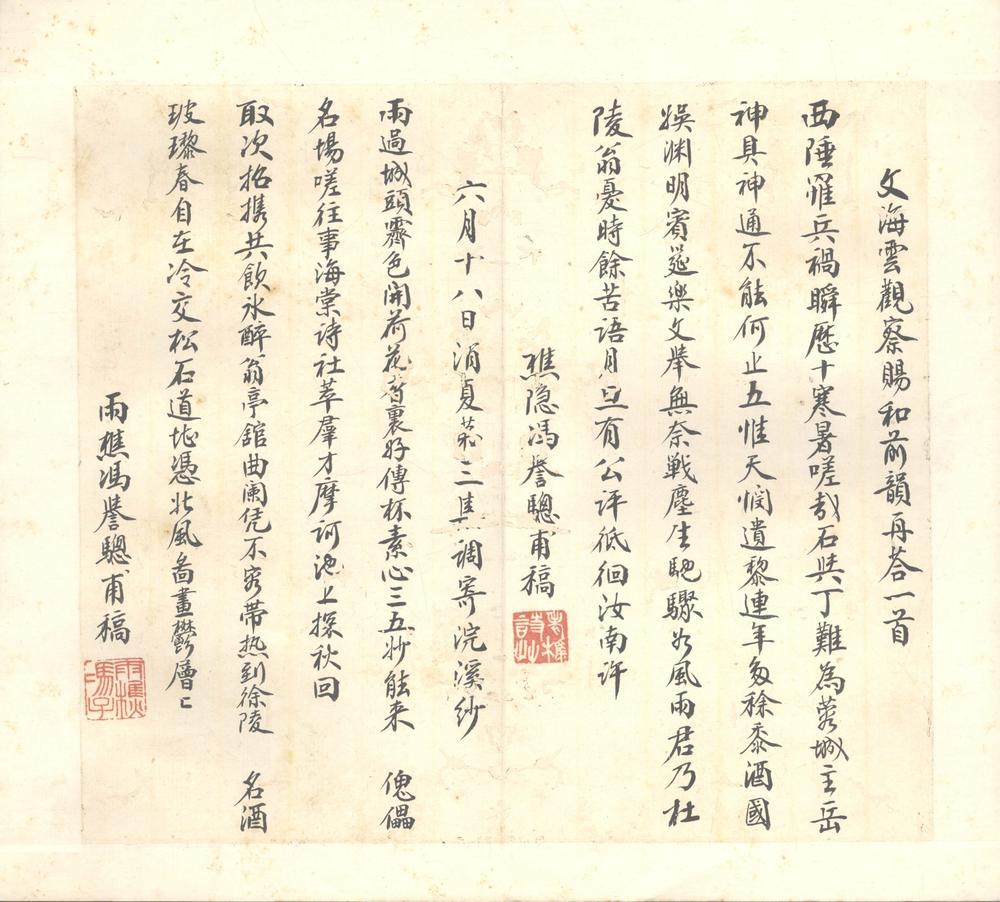 文海雲觀察賜和前韻再荅一首
西陲罹兵禍瞬歷十寒暑嗟哉石與丁難為蓉城主岳
神具神通不能何止五惟天憫遺黎連年多稌黍酒國
娛淵明賓筵樂文舉無奈戰塵生馳驟如風雨君乃杜
陵翁憂時餘苦語月旦有公評低徊汝南許
樵隐馮譽驄甫稿
六月十八日消夏第三集調寄浣溪紗
雨過城頭霽色開荷花香裏好傳杯素心三五妙能来 傀儡
名場嗟往事海棠诗社萃羣才摩訶池上探秋回
取次招攜共飲冰醉翁亭舘曲闌凭不容帶热到徐陵 名酒
玻瓈春自在冷交松石道堪憑北風畵畫鬱層〻
雨樵馮譽驄甫稿
雨樵